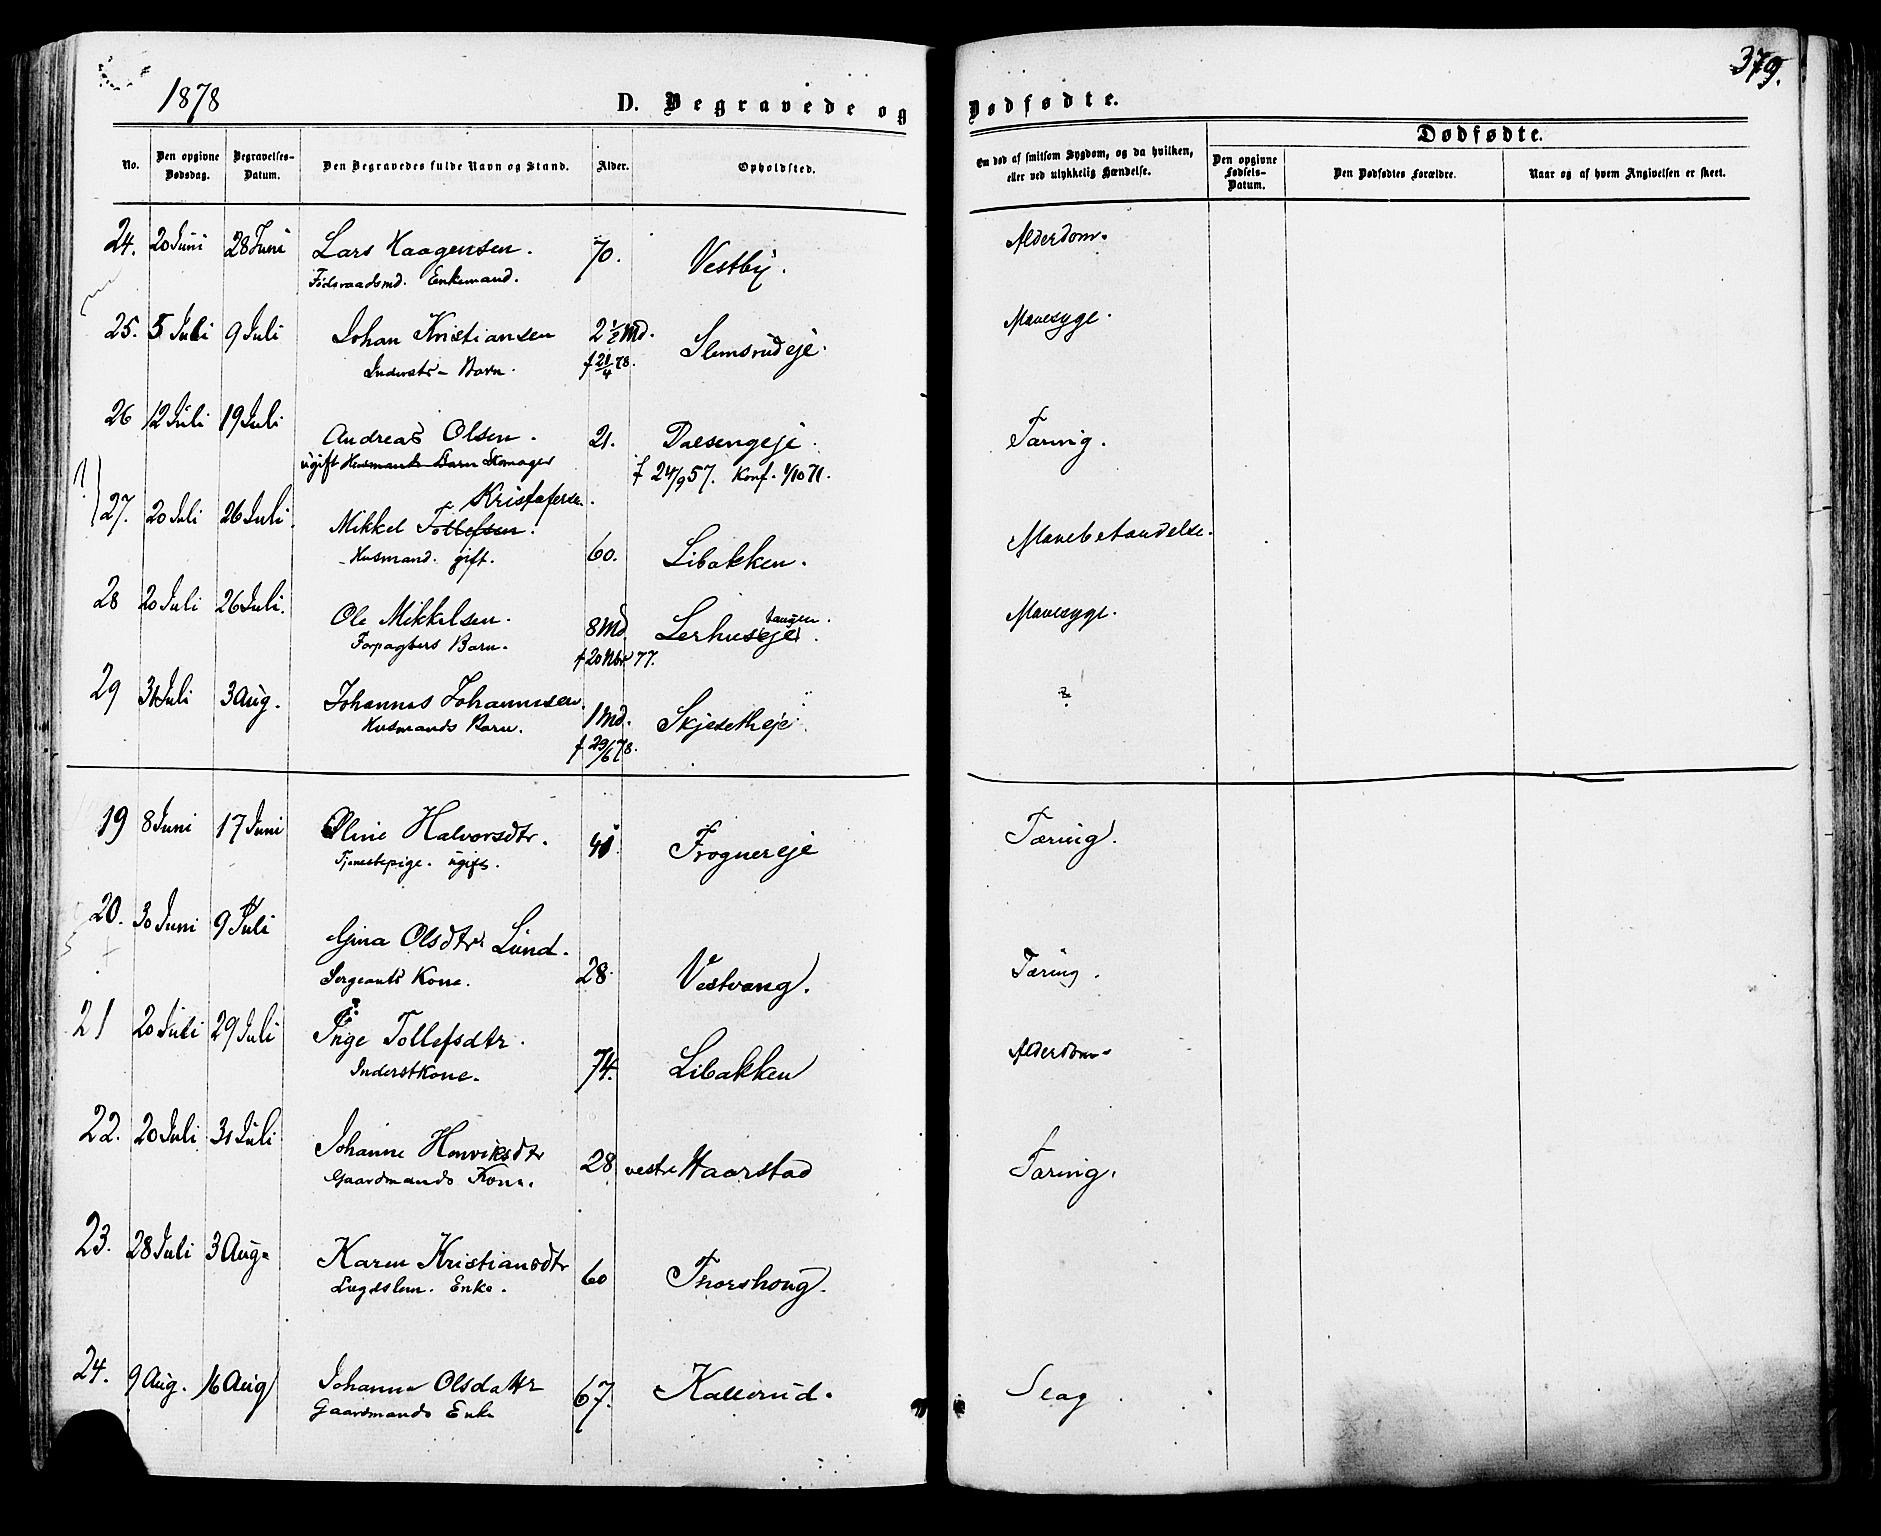 1878
D. Begravede og Dødfødte.
379.
No. Den opgivne Dødsdag. Begravelses-Datum. Den Begravedes fulde Navn og Stand. Alder. Opholdsted. Om død af smitsom Sygdom, og da hvilken, eller ved ulykkelig Hændelse.
Dødfødte.
Den opgivne Fødsels-Datum. Den Dødfødtes Forældre. Naar og af hvem Angivelsen er skeet.
24. 20 Juni 28 Juni Lars Haagensen. 70. Vestby. Alderdom.
Födsraadsmd. Enkemand.
25. 5 Juli 9 Juli Johan Kristiansen 2 1/2 Md. Slemsrudeje. Mavesyge.
Indersts Barn. f 21/4 78.
26 12 Juli 19 Juli Andreas Olsen. 21. Dalsengeje. Tæring.
ugift Husmands Barn Skomager f 24/9 57. Konf. 1/10 71.
Kristofersen.
27. 20 Juli 26 Juli. Mikkel Tollefsen. 60. Libakken. Mavebetændelse.
Husmand. gift.
28 20 Juli 26 Juli. Ole Mikkelsen. 8 Md. Lerhuseje. tangen. Mavesyge.
Forpagters Barn. f 20 Nbr 77.
29 31 Juli 3 Aug. Johannes Johannesen. 1 Md. Skjesetheje. ?
Husmands Barn. f 29/6 78.
19 8 Juni 17 Juni Oline Halvorsdtr. 41 Frognereje Tæring.
Tjenestepige. ugift.
20. 30 Juni 9 Juli Gina Olsdtr Lund. 28. Vestvang. Tæring.
Sergeants Kone.
21 20 Juli 29 Juli Inge Tollefsdtr. 74. Libakken Alderdom.
Inderstkone.
22. 20 Juli 31 Juli Johanne Henriksdtr 28 vestre Haarstad Tæring.
Gaardmands Kone.
23. 28 Juli 3 Aug. Karen Kristiansdtr 60 Thorshoug.
Lægdslem. Enke.
24. 9 Aug. 16 Aug Johanne Olsdattr 67. Kallerud. Slag
Gaardmands Enke